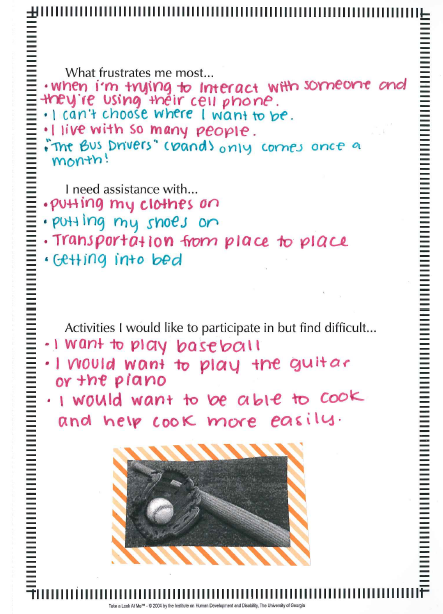 What frustrates me most...
• when i'm trying to interact with someone and
they're using their cell phone.
• I can't choose where I want to be.
• I live with so many people.
• "The Bus Drivers" (band) only comes once a
month!
I need assistance with...
• putting my clothes on
• putting my shoes on
• Transportation from place to place
• Getting into bed
Activities I would like to participate in but find difficult...
• I want to play baseball
• I would want to play the guitar
or the piano
• I would want to be able to cook
and help cook more easily.
Take a Look At Me™ - © 2004 by the Institute on Human Development and Disability, The University of Georgia